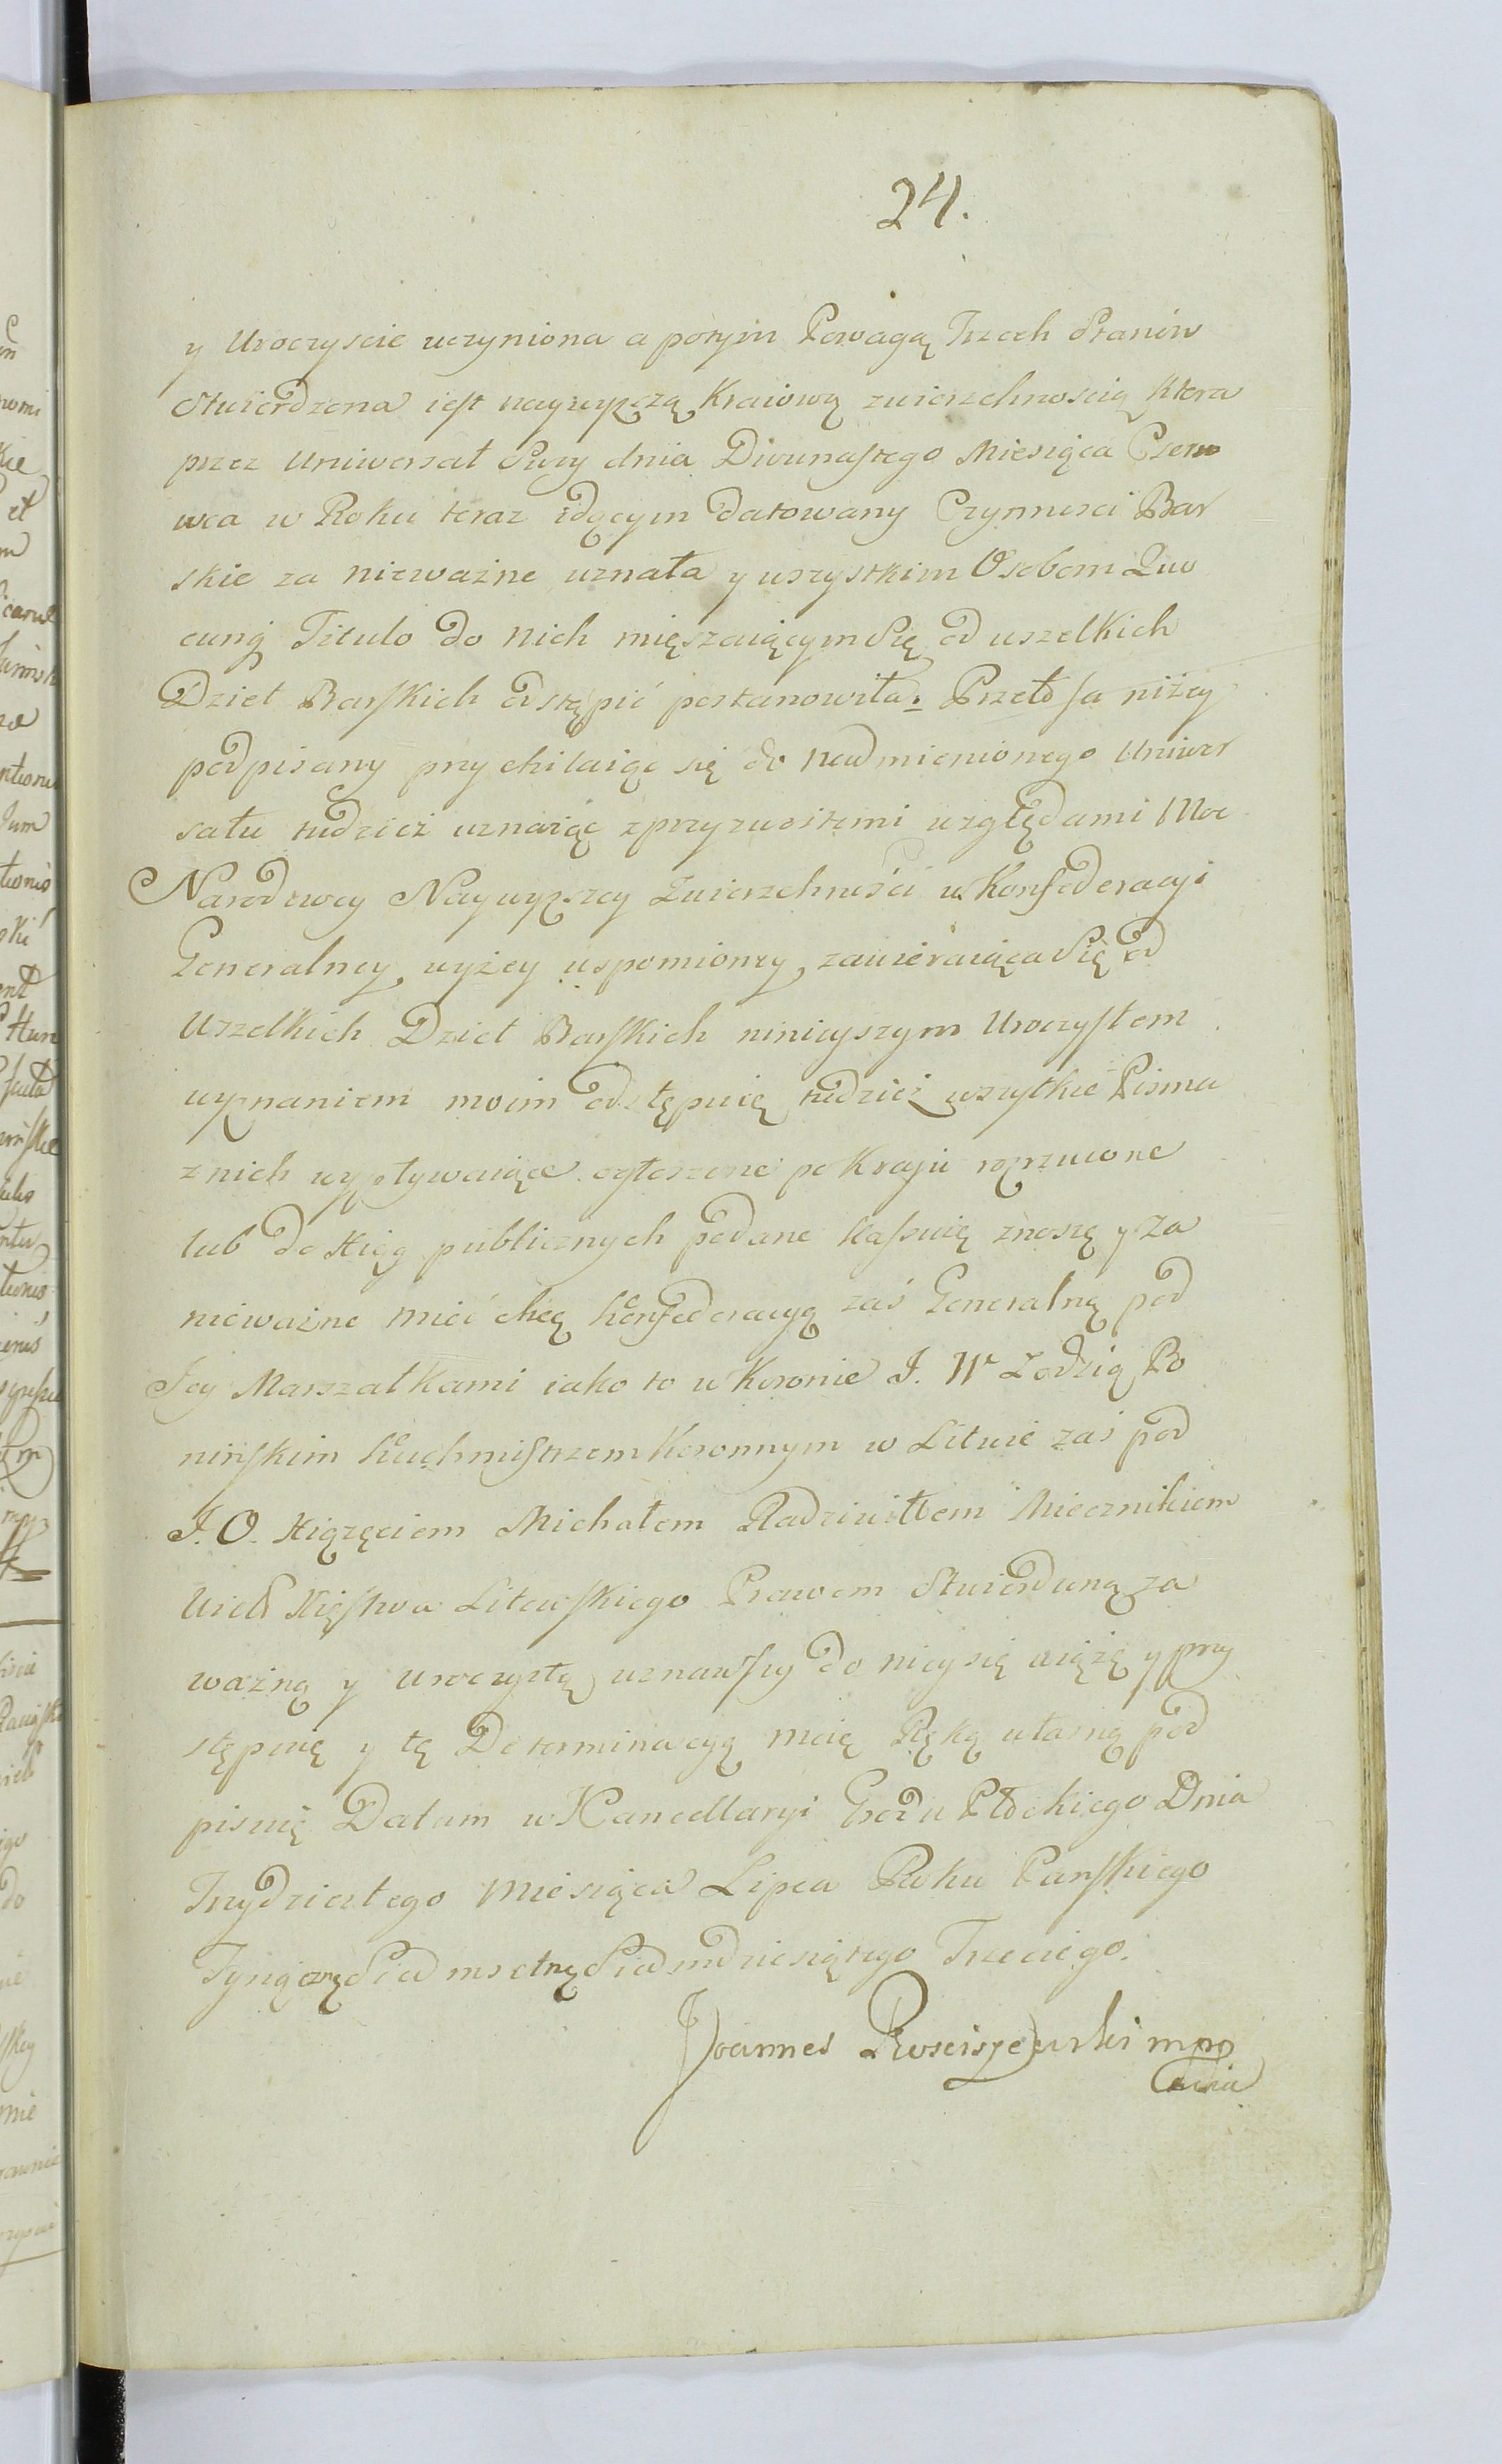 24.
y Uroczyscie uczyniona a potym Powagą Trzech Stanów
Stwierdzona iest naywyszą Kraiową zwierzchnoscią ktora
przez Uniwersał Swoy dnia Dwunastego Miesiąca Czerw
wca w Roku teraz idącym datowany Czynnosci Bar
skie za nieważne uznała y wszystkim Osobom Quo
cunq Titulo do nich mięszaiącym Się od wszelkich
Dzieł Barskich odstąpić postanowiła. Przeto Ja niżey
podpisany przychilaiąc się do nadmienionego Uniwer
sału tudzież uznaiąc z przyzwoitemi względami Moc
Narodowey Naywyższey Zwierzchności w Konfederacyi
Generalney wyżey wspomioney zawieraiąca Się od
Wszelkich Dzieł Barskich ninieyszym Uroczystem
wyznaniem moim odstępuię tudzież wszytkie Pisma
z nich wypływaiące ogłoszone po Kraju rozrzucone
lub do Xiąg publicznych podane kassuię znoszę y za
nieważne mieć chcę konfederacyą zaś Generalną pod
Jey Marszałkami iako to w Koronie J. W Łodzią Po
nińskim Kuchmistrzem Koronnym w Litwie zaś pod
J. O. Xiązęciem Michałem Radziwiłłem Miecznikiem
Wiel Xięstwa Litewskiego Prawem Stwierdzoną za
ważną y uroczystą uznawszy do niey się wiążę y przy
stępuię y tę Determinacyą moię Ręką własną pod
pisuię Datum w Kancellaryi Grodu Płockiego Dnia
Trzydziestego Miesiąca Lipca Roku Panskiego
Tysiącznego Siedmsetnego Siedmdziesiątego Trzeciego.
Joannes Rosciszewski mpp